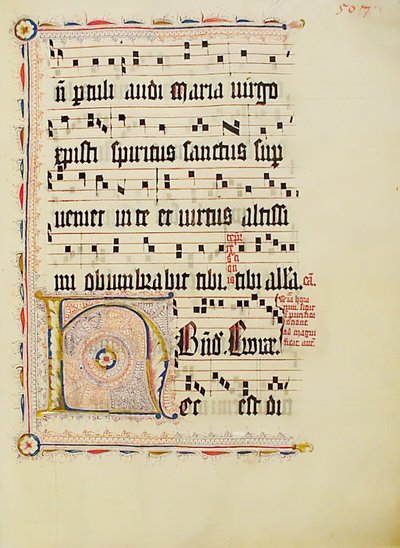 507
n̄ ꝑtuli audi maria uirgo
xp̄isti spiritus sanctus sup
ueniet in te et uirtus altissi
mi obumbrabit tibi. tibi all'a. ca̅.
Bn̄o. Ewae.
H ec est di